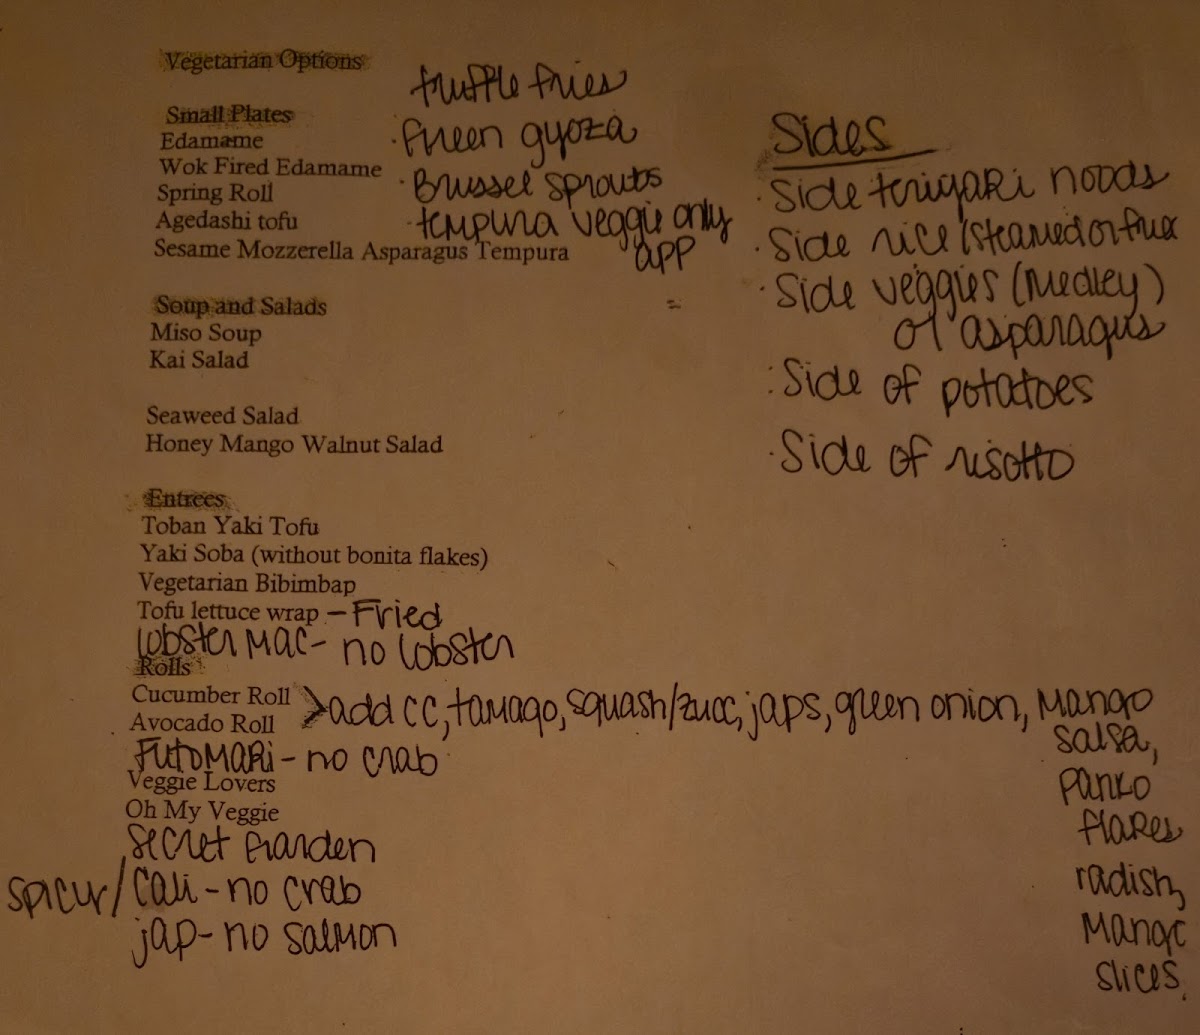 Vegetarian Options
truffle fries
Small Plates
Edamame
Wok Fired Edamame
Spring Roll
Agedashi tofu
Sesame Mozzerella Asparagus Tempura
· Green gyoza
· Brussel sprouts
· tempura veggie only
app
Sides
· Side teriyaki noods
· Side rice (steamed or
· Side veggies (medley)
or asparagus
· Side of potatoes
· Side of risotto
Soup and Salads
Miso Soup
Kai Salad
Seaweed Salad
Honey Mango Walnut Salad
Entrees
Toban Yaki Tofu
Yaki Soba (without bonita flakes)
Vegetarian Bibimbap
Tofu lettuce wrap - Fried
lobster mac - no lobster
Rolls
Cucumber Roll
Avocado Roll
> add cc, tamago, squash/zucc, japs, green onion, mango
salsa,
panko
flakes
radish,
mango
slices.
Futomaki - no crab
Veggie Lovers
Oh My Veggie
Secret Garden
/ cali - no crab
jap - no salmon